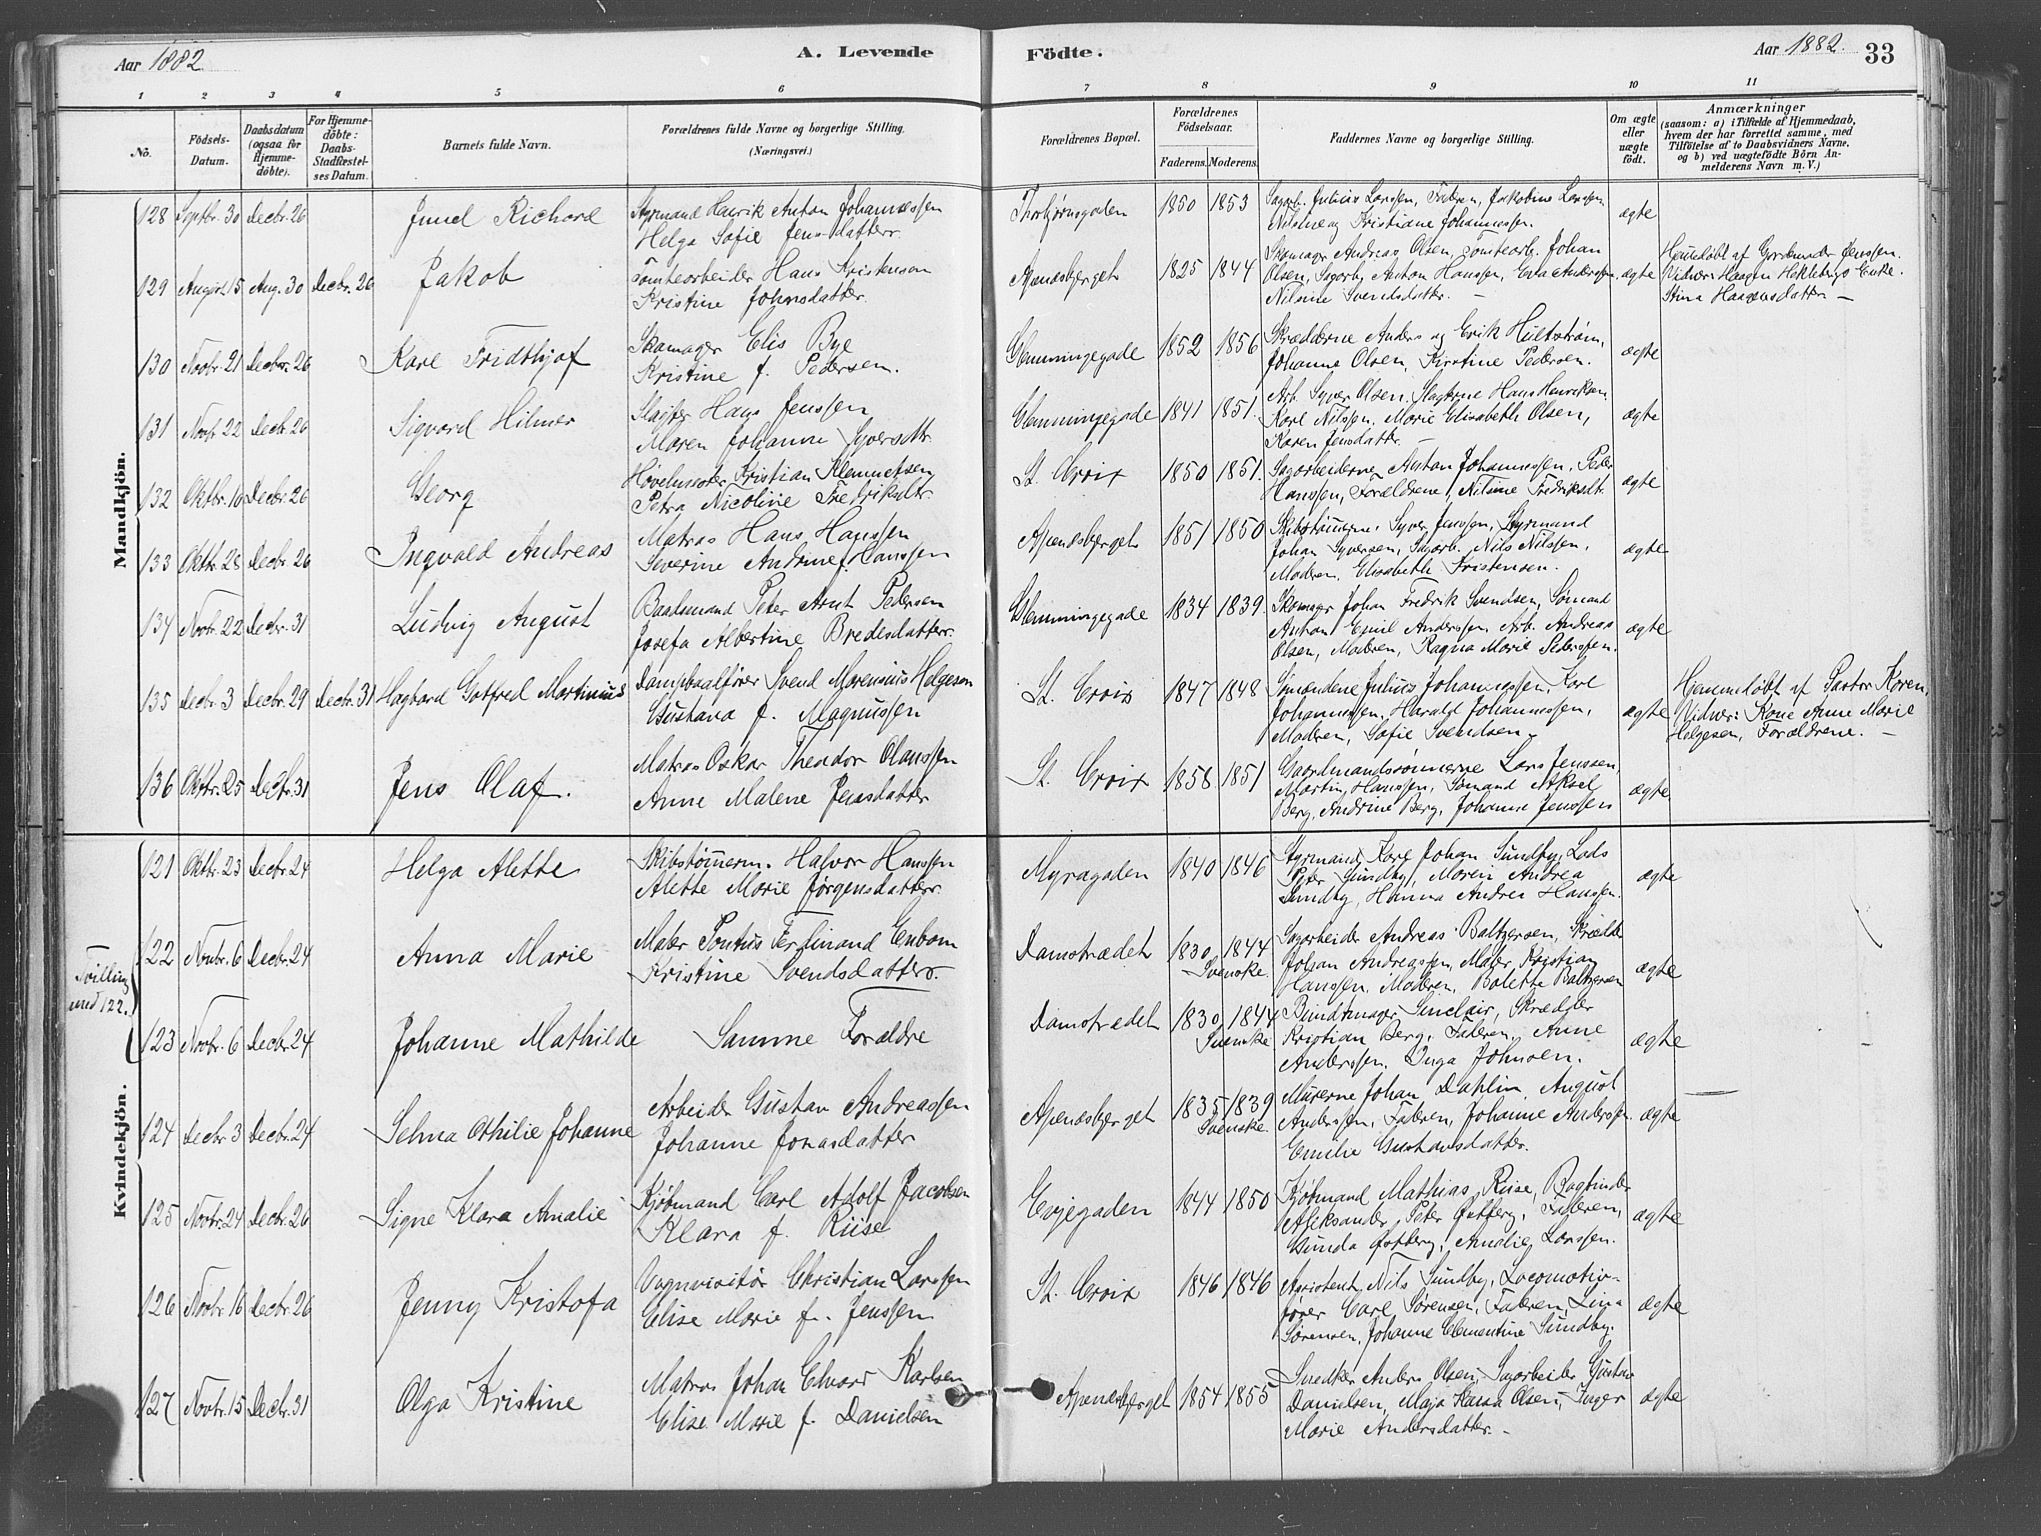 Aar 1882.
A. Levende
Födte.
Aar 1882.
33
1 2 3 4 5 6 7 8 9 10 11
No.
Födsels-Datum.
Daabsdatum (ogsaa for Hjemme-döbte).
For Hjemme-döbte: Daabs-Stadfæstel-ses Datum.
Barnets fulde Navn.
Forældrenes fulde Navne og borgerlige Stilling.
(Næringsvei.)
Forældrenes Bopæl.
Forældrenes Födselsaar.
Faderens. Moderens.
Faddernes Navne og borgerlige Stilling.
Om ægte eller uægte födt.
Anmærkninger
(saasom: a) i Tilfælde af Hjemmedaab,
hvem der har forrettet samme, med
Tilföielse af to Daabsvidners Navne.
og b) ved uægtefödte Börn An-
melderens Navn m. V.)
Mandkjön.
128 Septbr. 30 Decbr. 26
Juul Richard
Styrmand Henrik Anton Johannessen
Helga Sofie Jensdatter.
Thorbjørnsgaden 1850 1853
Sagarb. Julius Larssen, Faderen, Jakobine Larssen
Nilsine og Kristiane Johannessen.
ægte
129 August 15 Aug. 30 Decbr. 26
Jakob
Tomtearbeider Hans Kristensen
Kristine Johnsdatter.
Apenæsberget 1825 1844
Skomager Andreas Olsen, Tomtearb. Johan
Olsen, Sagarb. Anton Hanssen, Eva Anderssen.
Nilsine Svendsdatter. –
ægte
Hjemdøbt af Gordemoder Jenssen.
Vidner: Haagen Heklebergs Enke.
Stina Haagensdatter –
130 Novbr. 21 Decbr. 26
Karl Fridthjof
Skomager Elis Bye
Kristine f. Pedersen.
Glemmingegade 1852 1856
Skrædderne Anders og Erik Hultstrøm,
Johanne Olsen, Kirstine Pedersen.
ægte
131 Novbr. 22 Decbr. 26
Sigvard Hilmer
Slagter Hans Jenssen
Maren Johanne Syversdtr.
Glemmingegade 1841 1851.
Arb. Syver Olsen. Slagterne Hans Henriksen
Karl Nilssen, Marie Elisabeth Olsen,
Karen Jensdatter. –
ægte
132 Oktbr. 16 Decbr. 26
Georg
Høvelmester Kristian Klemmetsen
Petra Nicoline Fredriksdtr.
St. Croix 1850 1851.
Sagarbeiderne Anton Johannessen, Peder
Hanssen, Forældrene, Nilsine Fredriksdtr.
ægte
133 Oktbr. 28 Decbr. 26
Ingvald Andreas
Matros Hans Hanssen
Severine Andrine f. Hanssen
Apenæsberget 1851 1850
Skibstømmerm. Syver Jenssen, Styrmand
Johan Syversen, Sagarb. Nils Nilssen,
Moderen, Elisabeth Kristensen.
ægte
134 Novbr. 22 Decbr. 31
Ludvig August
Baadsmand Peter Arnt Pedersen
Josefa Albertine Bredesdatter.
Glemmingegade 1834 1839.
Skomager Johan Fredrik Svendsen, Sømand
Anton Emil Anderssen, Arb. Andreas
Olsen, Moderen, Ragna Marie Pederssen.
ægte
135 Decbr. 3 Decbr. 29 Decbr. 31
Hagbard Gotfred Martinius
Dampsagfører Svend Marensius Helgesen
Gustava f. Magnussen
St. Croix 1847 1848
Sømændene Julius Johannessen, Karl
Johannessen, Harald Johannessen,
Moderen, Sofie Svendsen –
ægte
Hjemmedøbt af Pastor Koren,
Vidner: Kone Anne Marie
Helgesen, Forældrene. –
136 Oktbr. 25 Decbr. 31
Jens Olaf.
Matros Oskar Theodor Olaussen
Anne Malene Jensdatter
St. Croix 1858 1851
Gaardmandssønnerne Lars Jenssen,
Martin Hanssen, Sømand Aksel
Berg, Andrine Berg, Johanne Jenssen
ægte
Kvindekjön.
121 Oktbr. 23 Decbr. 24
Helga Alette
Skibstømmerm. Halvor Hanssen
Alette Marie Jørgensdatter
Myragaden 1840 1846
Styrmand Karl Johan Sundby, Lods
Peter Sundby, Maren Andrea
Sundby, Hanna Andrea Hanssen.
ægte
Tvilling
med 122.
122 Novbr. 6 Decbr. 24
Anna Marie
Maler Pontus Ferdinand Enbom
Kristine Svendsdatter.
Damstrædet 1830 1844
Svenske.
Sagarbeider Andreas Baltzersen, Skrædder
Johan Andreassen, Maler Kristian
Hanssen, Moderen, Bolette Baltzersen
ægte
123 Novbr. 6 Decbr. 24
Johanne Mathilde
Samme Forældre
Damstrædet 1830 1844
Svenske
Bundtmager Sinclair, Skrædder
Kristian Berg, Faderen, Anne
Anderssen, Inga Johnsen.
ægte
124 Decbr. 3 Decbr. 24
Selma Othilie Johanne
Arbeider Gustav Andreassen
Johanne Jonasdatter
Apenæsberget 1835 1839
Svenske.
Murerne Johan Dahlin, August
Anderssen, Faderen, Johanne Anderssen
Emilie Gustavsdatter.
ægte
125 Novbr. 24 Decbr. 26
Signe Klara Amalie
Kjøbmand Carl Adolf Jacobsen
Klara f. Riise
Evjegaden 1844 1850
Kjøbmand Mathias Riise, Bogbinder
Aleksander Peter Østberg, Faderen,
Gunda Østberg, Amalie Larssen.
ægte
126 Novbr. 16 Decbr. 26
Jenny Kristofa
Vognvisitør Christian Larssen
Elise Marie f. Jenssen
St. Croix 1846 1846
Assistent Nils Sundby, Locomotiv-
fører Carl Sørensen, Faderen, Lina
Sørensen, Johanne Clementine Sundby.
ægte
127 Novbr. 15 Decbr. 31
Olga Kristine
Matros Johan Edvard Karlsen
Elise Marie f. Danielsen
Apenæsberget 1854 1855
Snedker Anders Olsen, Sagarbeider Gustav
Danielsen, Maja Kaisa Olsen, Inger
Marie Andersdatter. –
ægte